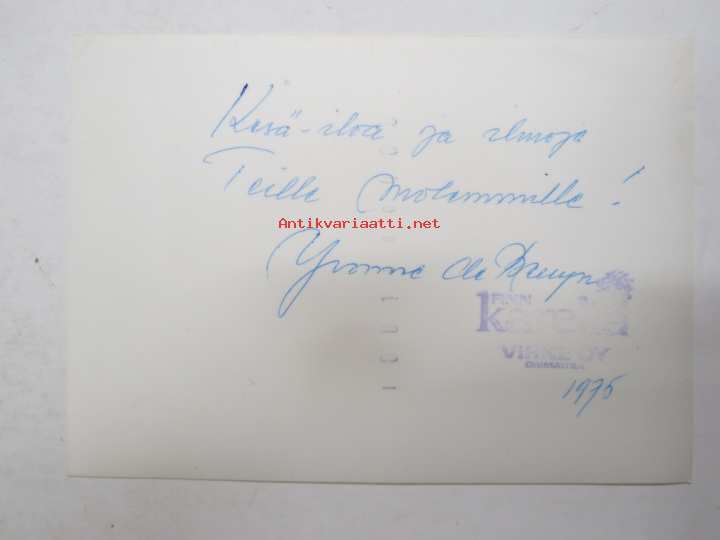 Kesä-iloa ja ilmoja
Teille molemmille!
Antikvariaatti.net
Yvonne de Bruyn
FINN
karelia
VIRKE OY
1975